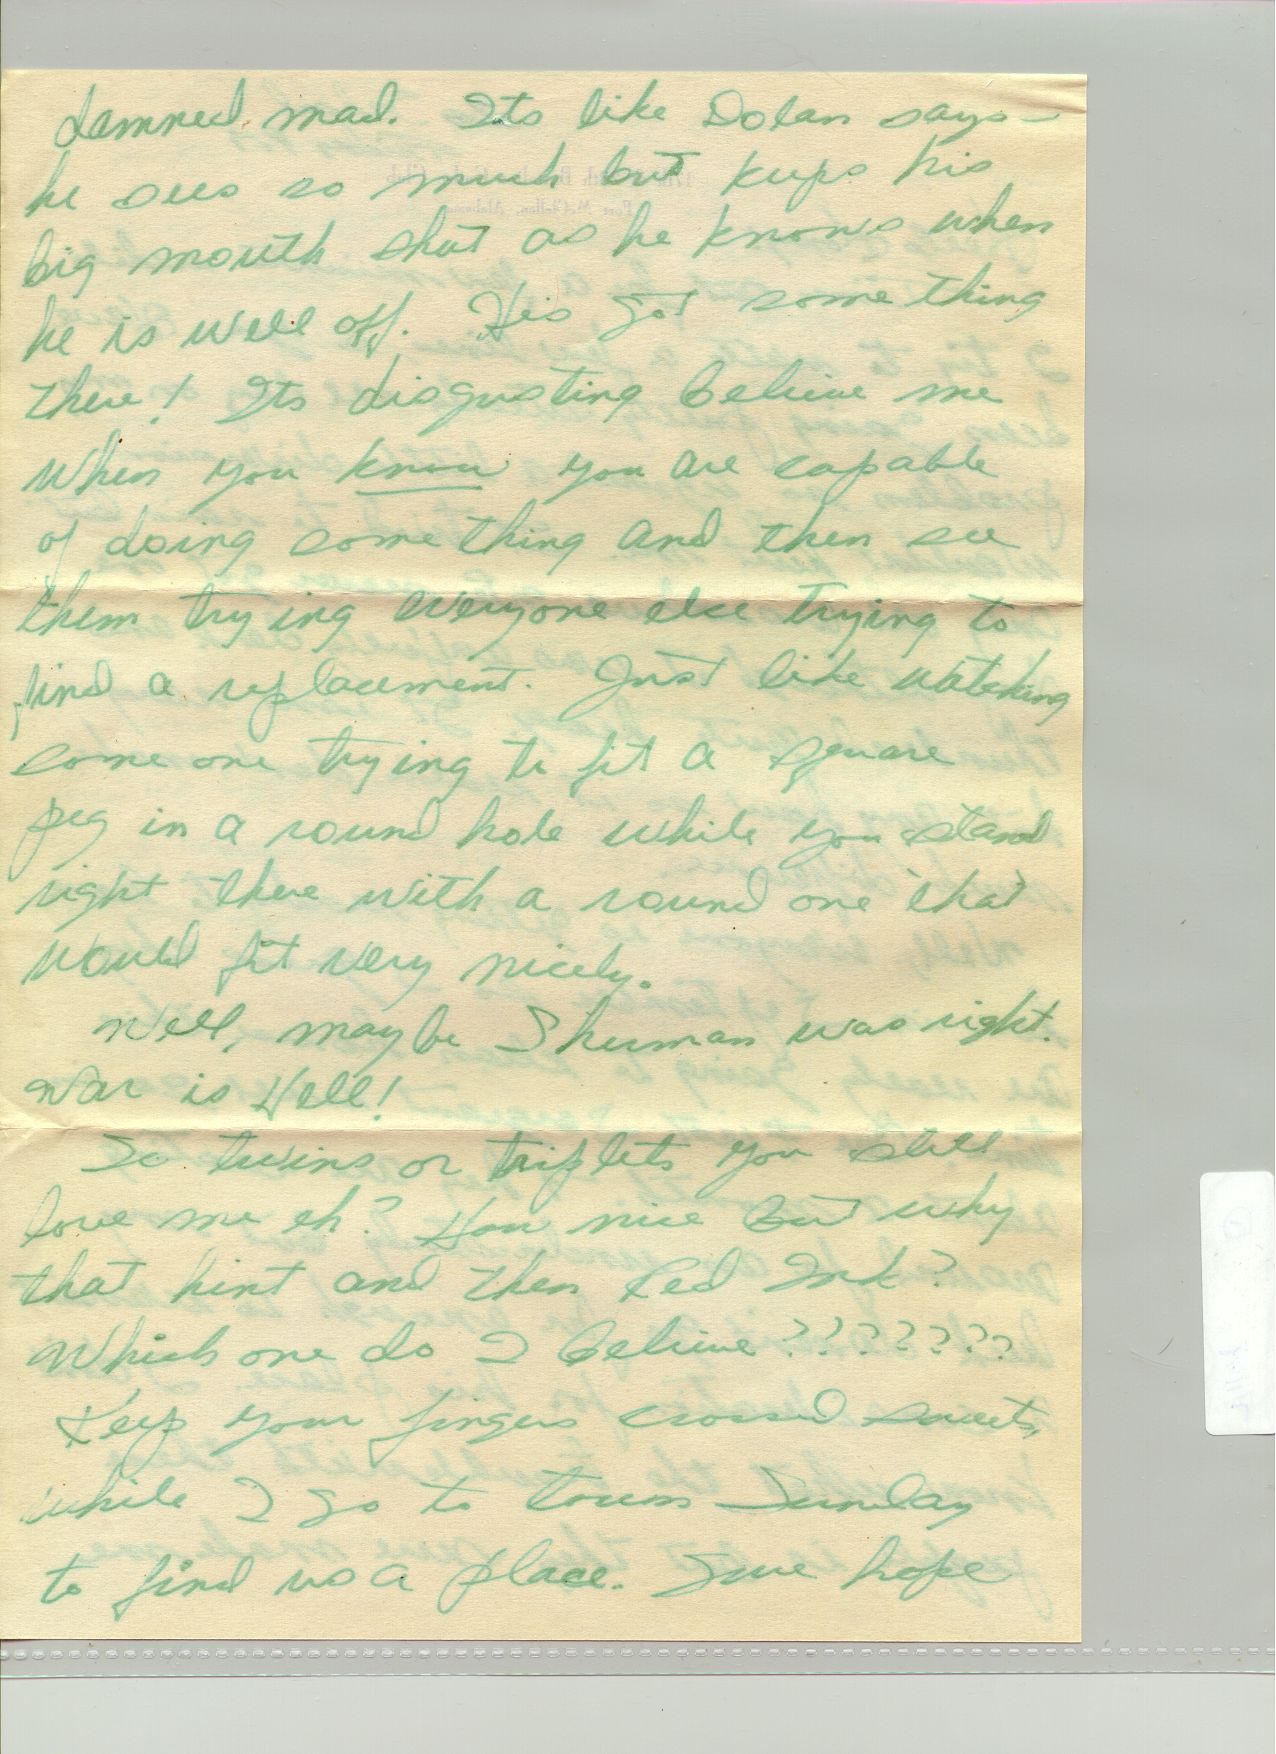 damned mad. Its like Dolan says—
he sees so much but keeps his
big mouth shut as he knows when
he is well off. He's got something
there! Its disgusting believe me
when you know you are capable
of doing something and then see
them trying everyone else trying to
find a replacement. Just like watching
some one trying to fit a square
peg in a round hole while you stand
right there with a round one that
would fit very nicely.
Well, maybe Sherman was right.
War is Hell!
So twins or triplets you still
love me eh? How nice but why
that hint and then Red Ink?
Which one do I believe???????
Keep your fingers crossed sweets,
while I go to town Sunday
to find us a place. Sure hope